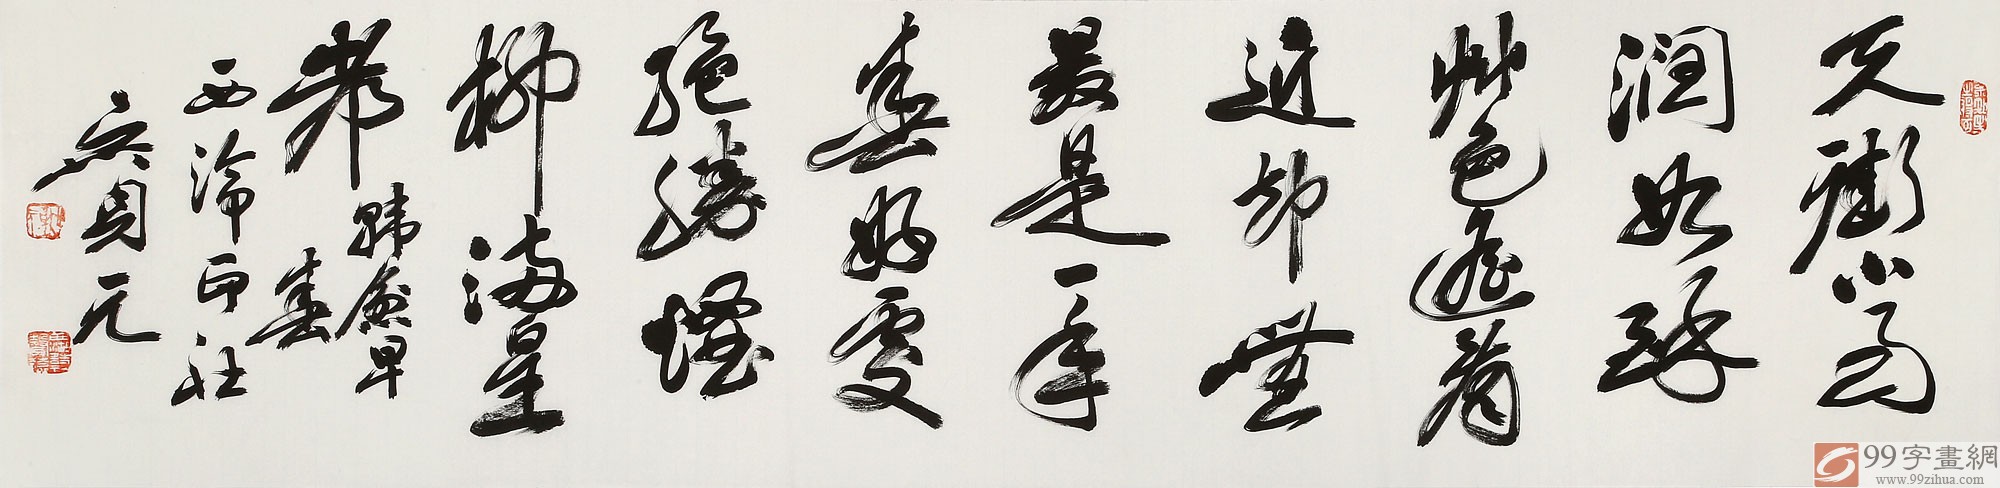 天街小雨
润如酥
艸色遥看
近却無
最是一年
春好處
絶勝煙
柳满皇
都 韓愈早
春
西泠印社
99字畫網
www.99zihua.com